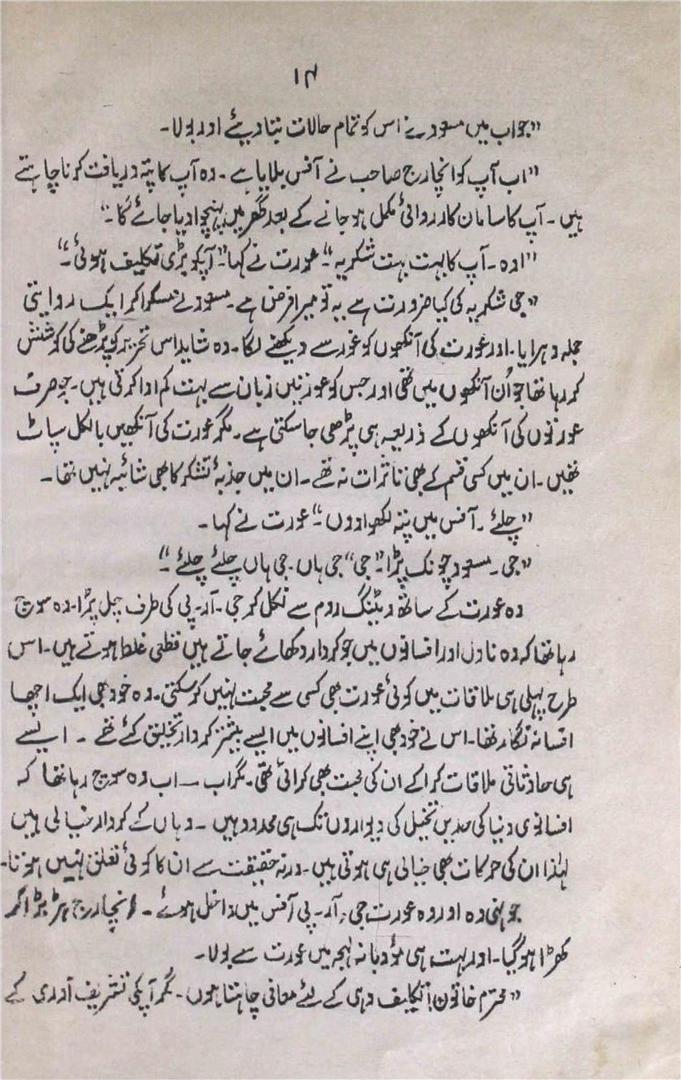 ۱۴
"جواب میں مسعود نے اس کو تمام حالات بتا دیئے اور بولا۔
"اب آپ کو انچارج صاحب نے آفس بلایا ہے۔ وہ آپ کا پتہ دریافت کرنا چاہتے
ہیں۔ آپ کا سامان کارروائی مکمل ہو جانے کے بعد گھر میں پہنچوا دیا جائے گا۔"
"اوہ۔ آپ کا بہت بہت شکریہ"۔ عورت نے کہا۔ "آپکو بڑی تکلیف ہوئی۔"
"جی شکریہ کی کیا ضرورت ہے یہ تو میرا فرض ہے۔ مسعود نے مسکرا کر ایک روایتی
جملہ دہرایا۔ اور عورت کی آنکھوں کو غور سے دیکھنے لگا۔ وہ شاید اس تحریر کو پڑھنے کی کوشش
کر رہا تھا جو اُن آنکھوں میں تھی اور جس کو عورتیں زبان سے بہت کم ادا کرتی ہیں۔ جو صرف
عورتوں کی آنکھوں کے ذریعہ ہی پڑھی جا سکتی ہے۔ مگر عورت کی آنکھیں بالکل سپاٹ
تھیں۔ ان میں کسی قسم کے بھی تاثرات نہ تھے۔ ان میں جذبۂ تشکر کا بھی شائبہ نہیں تھا۔
"چلئے۔ آفس میں پتہ لکھوا دوں"۔ عورت نے کہا۔
"جی۔ مسعود چونک پڑا۔ "جی" جی ہاں۔ جی ہاں چلئے چلئے۔"
وہ عورت کے ساتھ ویٹنگ روم سے نکل کر جی۔ آر۔ پی کی طرف چل پڑا۔ وہ سوچ
رہا تھا کہ وہ ناول اور افسانوں میں جو کردار دکھائے جاتے ہیں قطعی غلط ہوتے ہیں۔ اس
طرح پہلی ہی ملاقات میں کوئی عورت بھی کسی سے محبت نہیں کر سکتی۔ وہ خود بھی ایک اچھا
افسانہ نگار تھا۔ اس نے خود بھی اپنے افسانوں میں ایسے بیشتر کردار تخلیق کئے تھے۔ ایسے
ہی حادثاتی ملاقات کرا کے ان کی محبت بھی کرائی تھی۔ مگر اب — اب وہ سوچ رہا تھا کہ
افسانوی دنیا کی حدیں تخیل کی دیواروں تک ہی محدود ہیں۔ وہاں کے کردار خیالی ہیں
لہٰذا ان کی حرکات بھی خیالی ہی ہوتی ہیں۔ ورنہ حقیقت سے ان کا کوئی تعلق نہیں ہوتا۔
جونہی وہ اور وہ عورت جی، آر۔ پی آفس میں داخل ہوئے۔ انچارج ہڑبڑا کر
کھڑا ہو گیا۔ اور بہت ہی مؤدبانہ لہجہ میں عورت سے بولا۔
"محترم خاتون! تکلیف دہی کے لئے معافی چاہتا ہوں۔ مگر آپکی تشریف آوری کے